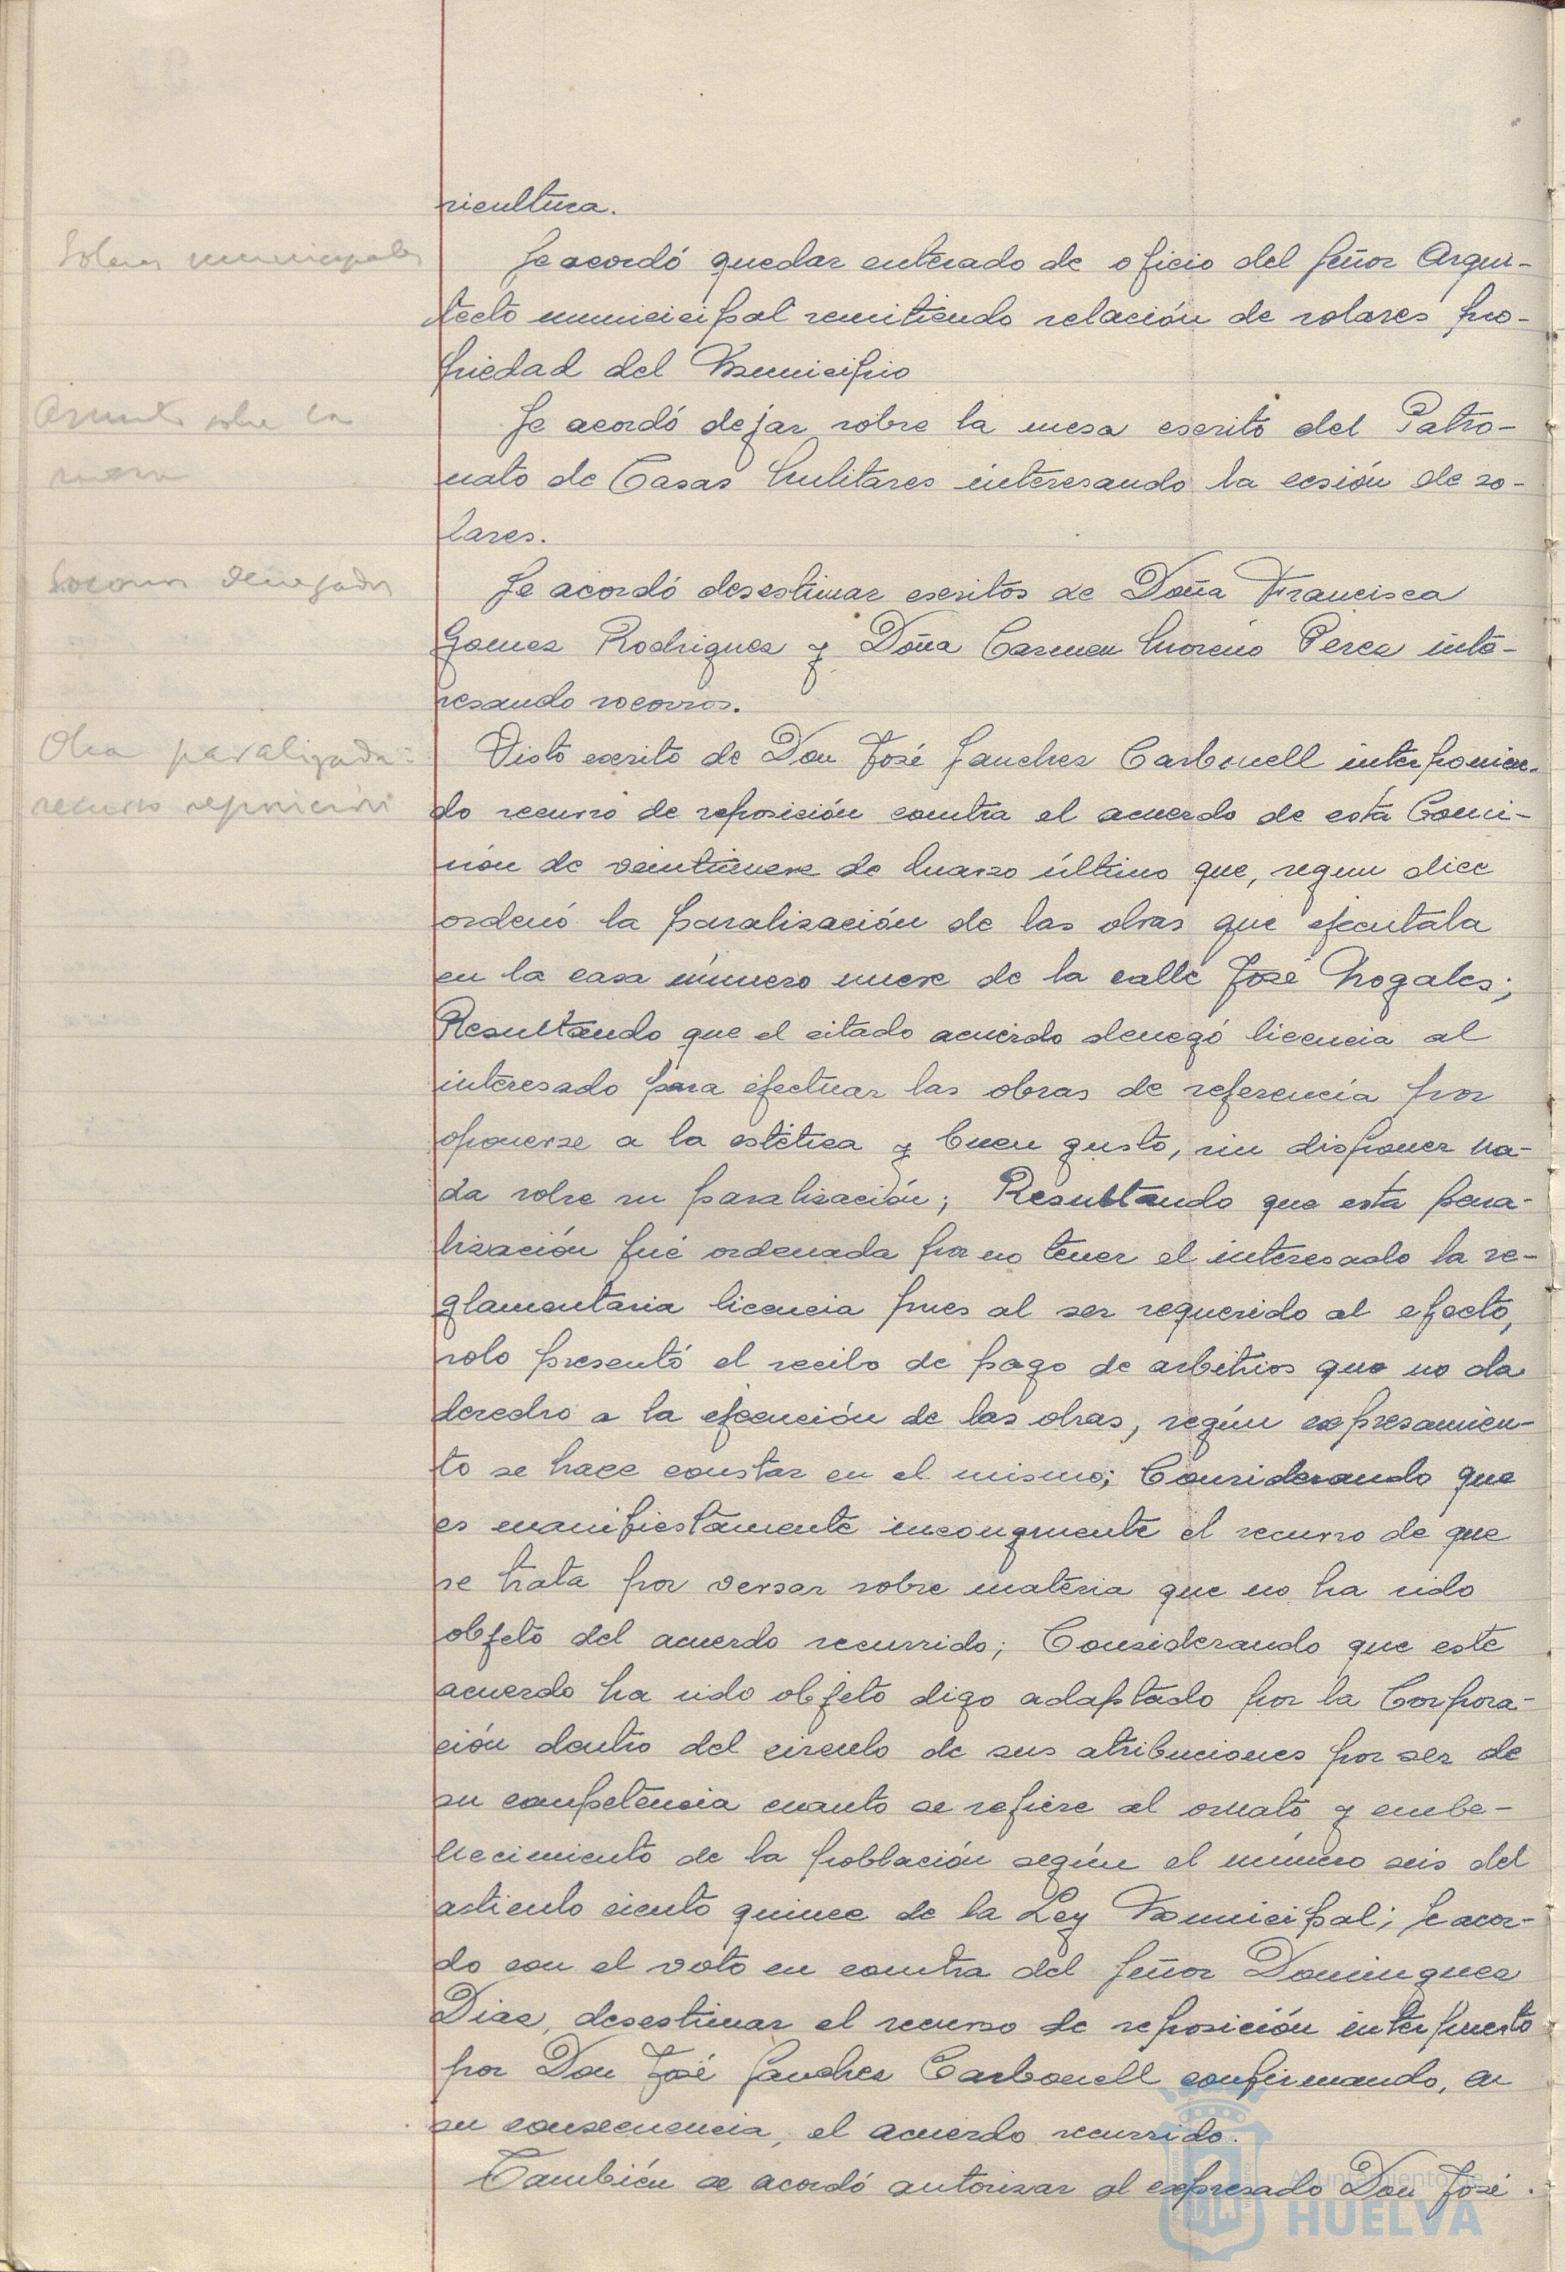 ricultura.
Solares municipales
Se acordó quedar enterado de oficio del Señor Arqui-
tecto municicipal remitiendo relación de solares pro-
piedad del Municipio
Asunto sobre la
mesa
Se acordó dejar sobre la mesa escrito del Patro-
nato de Casas Militares interesando la cesión de so-
lares.
Socorros denegados
Se acordó desestimar escritos de Doña Francisca
Gomez Rodriguez y Doña Carmen Moreno Perez inte-
resando socorros.
Obra paralizada:
recurso reposición
Visto escrito de Don José Sanchez Carbonell interponien-
do recurso de reposición contra el acuerdo de esta Comi-
sión de veintinueve de Marzo último que, segun dice
ordenó la paralización de las obras que ejecutaba
en la casa número nueve de la calle José Nogales;
Resultando que el citado acuerdo denegó licencia al
interesado para efectuar las obras de referencia por
oponerse a la estética y buen gusto, sin disponer na-
da sobre su paralización; Resultando que esta para-
lización fué ordenada por no tener el interesado la re-
glamentaria licencia pues al ser requerido al efecto,
solo presentó el recibo de pago de arbitrios que no da
derecho a la ejecución de las obras, según expresamen-
te se hace constar en el mismo; Considerando que
es manifiestamente incongruente el recurso de que
se trata por versar sobre materia que no ha sido
objeto del acuerdo recurrido; Considerando que este
acuerdo ha sido objeto digo adaptado por la Corpora-
ción dentro del circulo de sus atribuciones por ser de
su competencia cuanto se refiere al ornato y embe-
llecimiento de la población según el número seis del
articulo ciento quince de la Ley Municipal; Se acor-
do con el voto en contra del Señor Dominguez
Diaz, desestimar el recurso de reposición interpuesto
por Don José Sanchez Carbonell confirmando, en
su consecuencia, el acuerdo recurrido.
También se acordó autorizar al expresado Don José
Ayuntamiento de
HUELVA